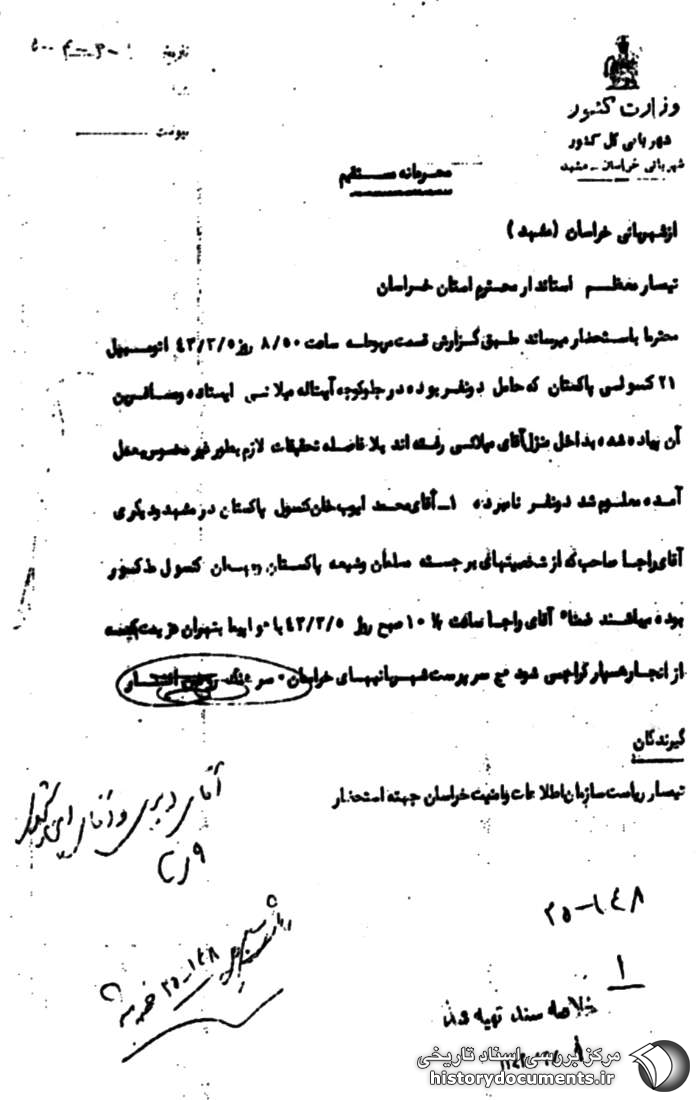 وزارت کشور
شهربانی کل کشور
شهربانی خراسان - مشهد
پیوست
محرمانه مستقیم
از شهربانی خراسان (مشهد)
تیمسار معظم استاندار محترم استان خراسان
محترما باستحضار میرساند طبق گزارش قسمت مربوطه ساعت ۸/۵۰ روز ۴۳/۲/۵ اتومبیل
۲۱ کنسولی پاکستان که حامل دونفر بوده در جلو کوچه آیتاله میلانی ایستاده ومسافرین
آن پیاده شده بداخل منزل آقای میلانی رفته اند بلا فاصله تحقیقات لازم بطور غیر محسوس بعمل
آمده معلوم شد دونفر نامبرده ۱- آقای محمد ایوب خان کنسول پاکستان در مشهد ودیگری
آقای راجا صاحب که از شخصیتهای برجسته مسلمان وشیعه پاکستان و کنسول مذکور
بوده میباشند ضمنا" آقای راجا ساعت ۱۰ صبح روز ۴۳/۲/۵ با هواپیما بتهران عزیمت که
از آنجا رهسپار کراچی شود سرپرست شهربانیهای خراسان سرهنگ
گیرندگان
تیمسار ریاست سازمان اطلاعات وامنیت خراسان جهته استحضار
آقای دبیری و آقای
۲۵-۱۴۸
۲۵-۱۴۸
۱
خلاصه سند تهیه شد
مرکز بررسی اسناد تاریخی
historydocuments.ir